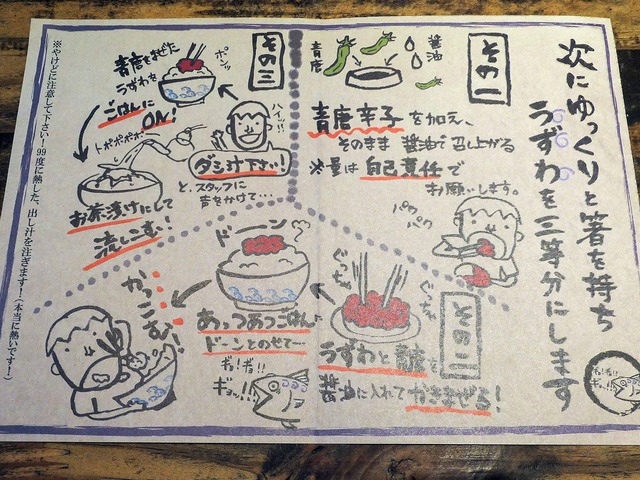 次にゆっくりと箸を持ち
うずわを三等分にします
その一
醤油
青唐
青唐辛子を加え、
そのまま 醤油で召し上がる
※量は自己責任で
お願いします。
パク
パク
その二
ぐっちゃ
ぐっちゃ
うずわと青唐を
醤油に入れてかきまぜる!
ドーーン
あっつあつごはんへ
ドーンとのせて…
かっこむ!
ギョ!ギョ!
ギョッ!!!
その三
ポンッ
青唐をまぜた
うずわを
ごはんに
ON!
ハイッ!!
ダシ汁下さい!
と、スタッフに
声をかけて…
トポポポポ…
お茶漬けにして
流しこむ!
※やけどに注意して下さい!99度に熱した、出し汁を注ぎます!(本当に熱いです!)